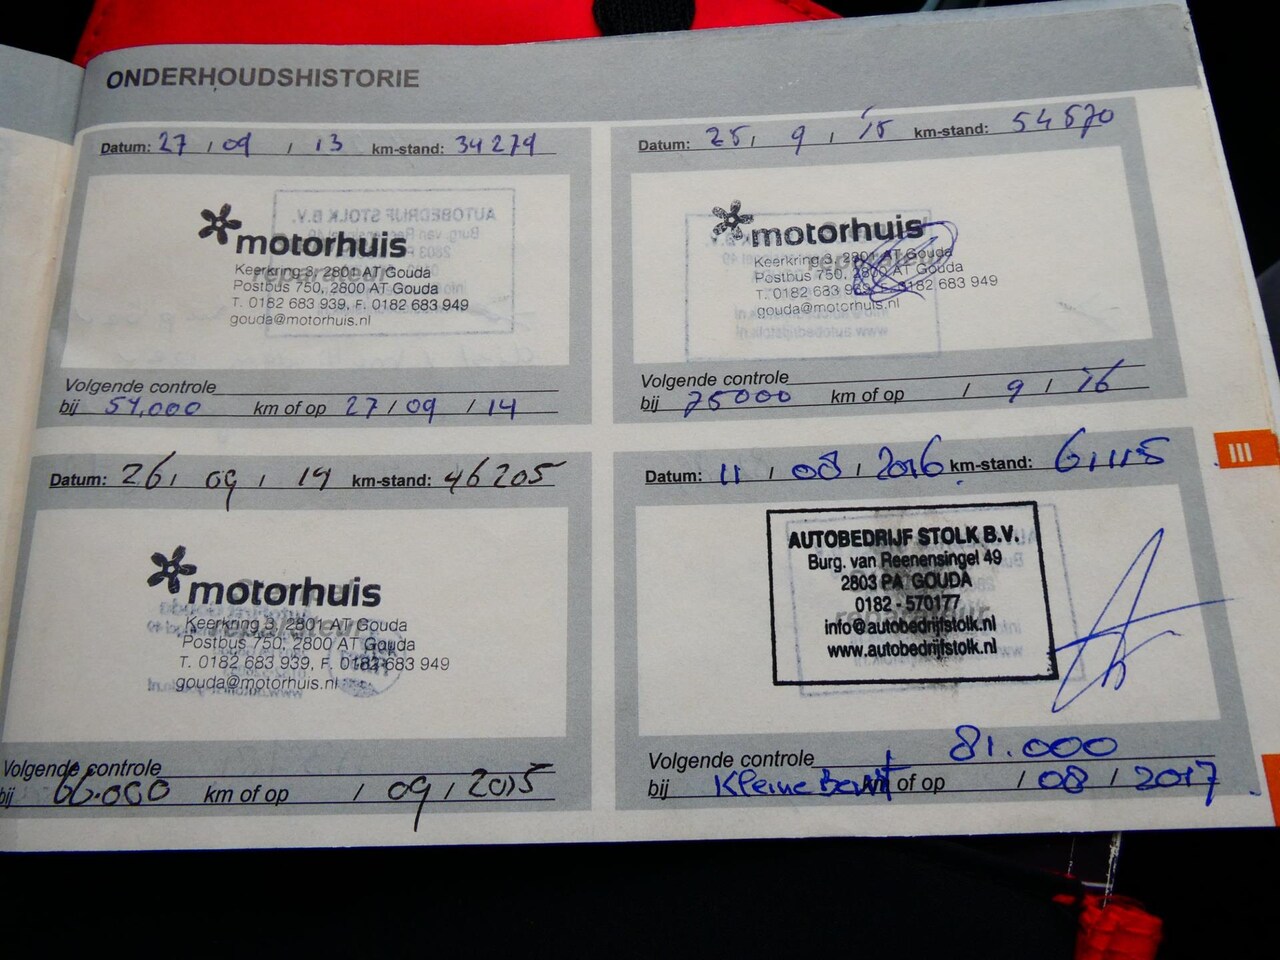 ONDERHOUDSHISTORIE
Datum: 27 / 09 / 13 km-stand: 34279
motorhuis
Keerkring 3, 2801 AT Gouda
Postbus 750, 2800 AT Gouda
T. 0182 683 939, F. 0182 683 949
gouda@motorhuis.nl
Volgende controle
bij 54.000 km of op 27 / 09 / 14
Datum: 25 / 9 / '15 km-stand: 54570
motorhuis
Keerkring 3, 2801 AT Gouda
Postbus 750, 2800 AT Gouda
T. 0182 683 939, F. 0182 683 949
gouda@motorhuis.nl
Volgende controle
bij 75000 km of op / 9 / '16
Datum: 26 / 09 / 14 km-stand: 46205
motorhuis
Keerkring 3, 2801 AT Gouda
Postbus 750, 2800 AT Gouda
T. 0182 683 939, F. 0182 683 949
gouda@motorhuis.nl
Volgende controle
bij 66.000 km of op / 09 / 2015
Datum: 11 / 08 / 2016 km-stand: 61115
AUTOBEDRIJF STOLK B.V.
Burg. van Reenensingel 49
2803 PA GOUDA
0182 - 570177
info@autobedrijfstolk.nl
www.autobedrijfstolk.nl
Volgende controle 81.000
bij Kleine Beurt of op / 08 / 2017
III